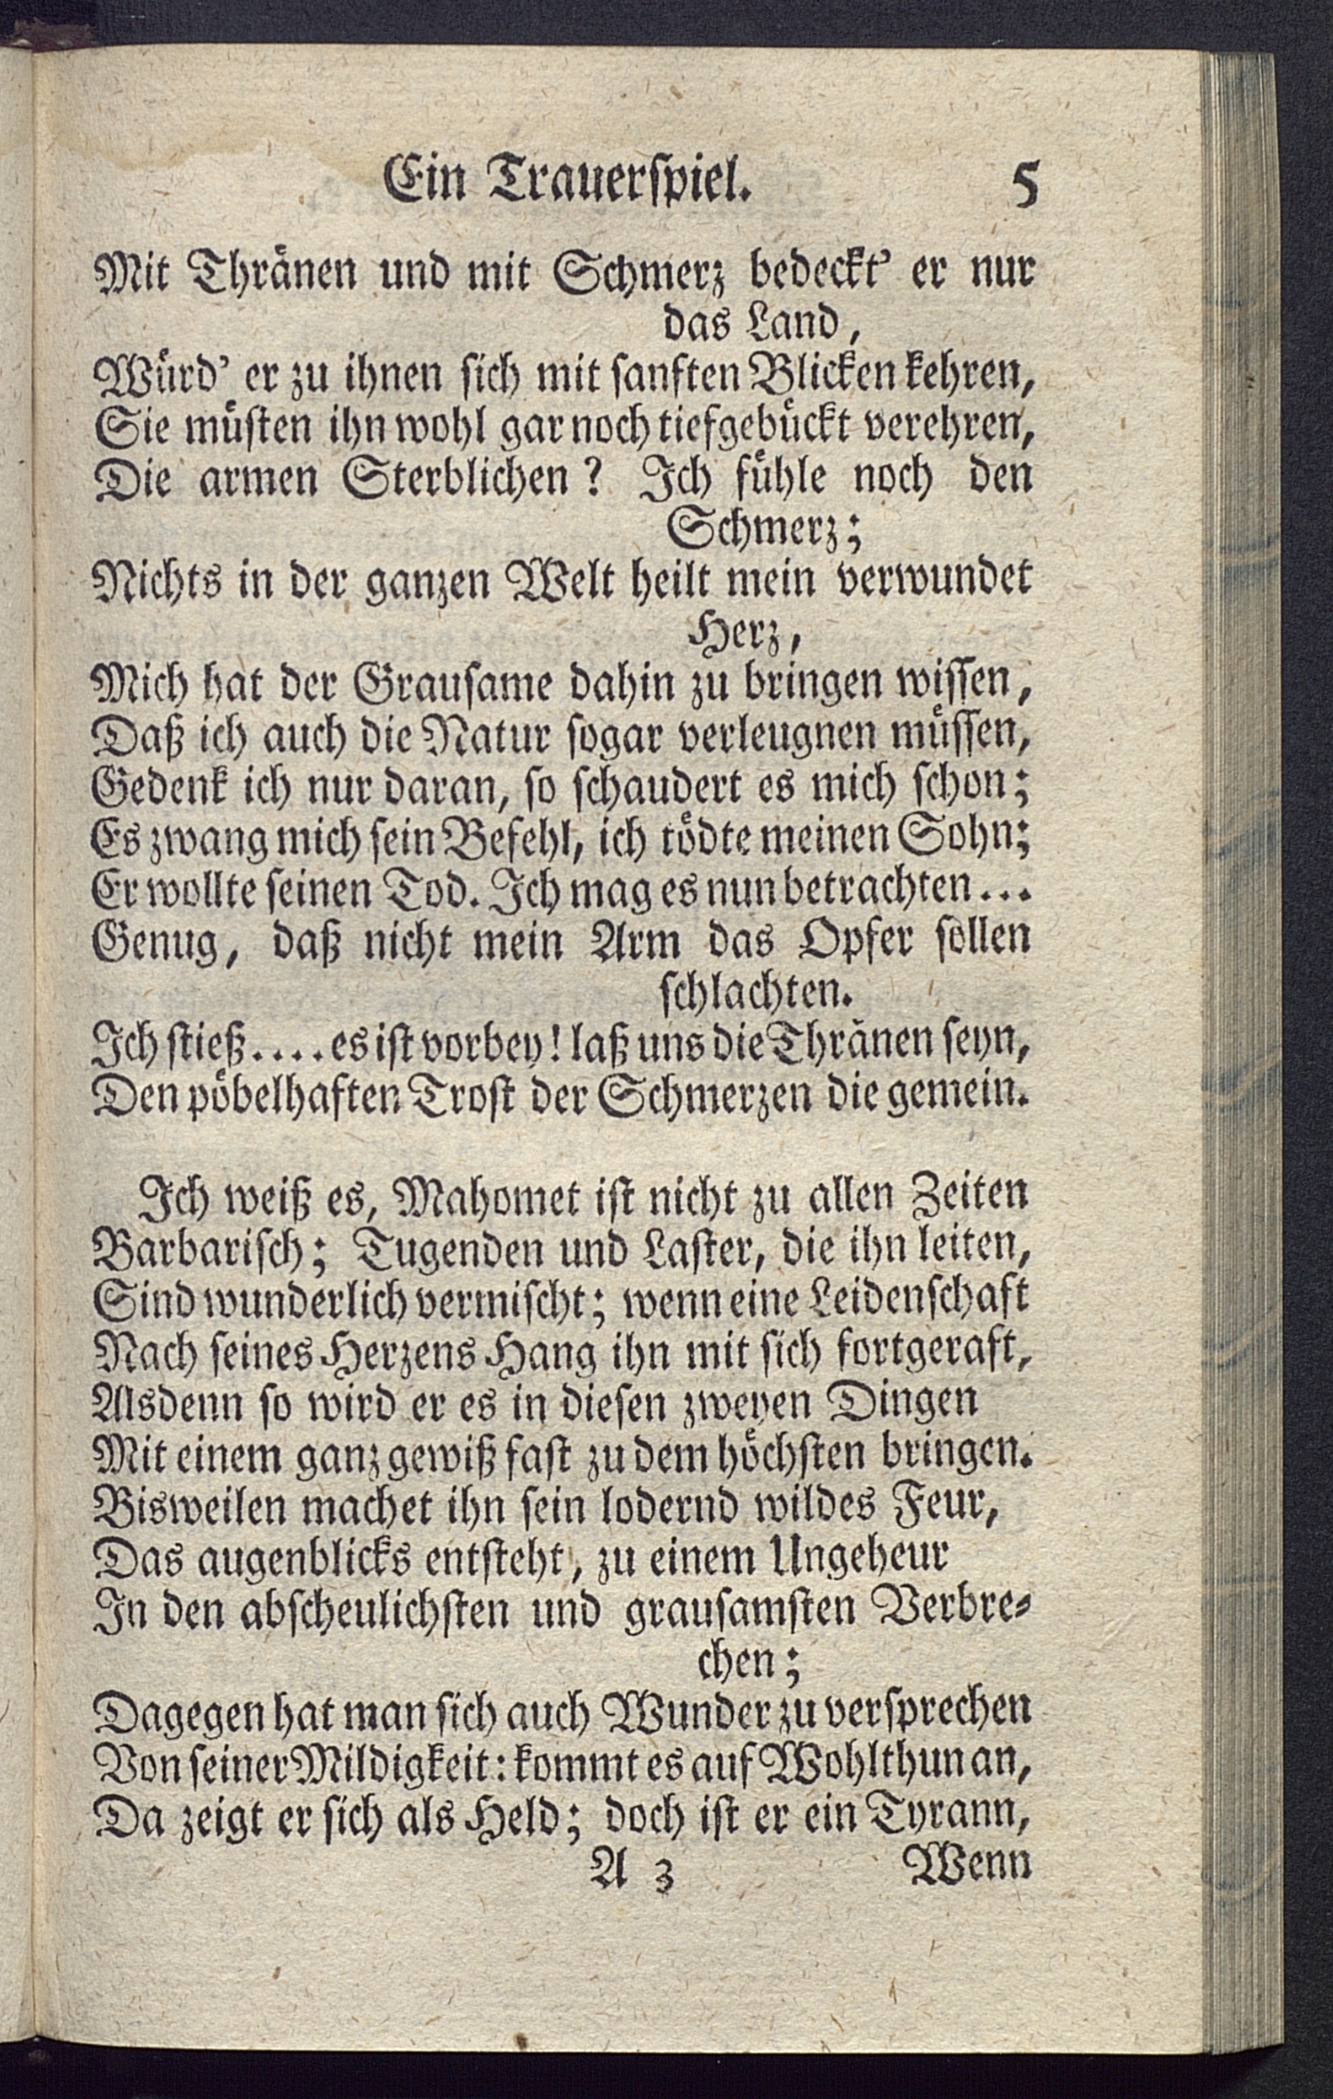 Ein Trauerspiel. 5
Mit Thränen und mit Schmerz bedeckt' er nur
das Land,
Würd' er zu ihnen sich mit sanften Blicken kehren,
Sie müsten ihn wohl gar noch tiefgebückt verehren,
Die armen Sterblichen? Ich fühle noch den
Schmerz;
Nichts in der ganzen Welt heilt mein verwundet
Herz,
Mich hat der Grausame dahin zu bringen wissen,
Daß ich auch die Natur sogar verleugnen müssen,
Gedenk ich nur daran, so schaudert es mich schon;
Es zwang mich sein Befehl, ich tödte meinen Sohn;
Er wollte seinen Tod. Ich mag es nun betrachten...
Genug, daß nicht mein Arm das Opfer sollen
schlachten.
Ich stieß.... es ist vorbey! laß uns die Thränen seyn,
Den pöbelhaften Trost der Schmerzen die gemein.
Ich weiß es, Mahomet ist nicht zu allen Zeiten
Barbarisch; Tugenden und Laster, die ihn leiten,
Sind wunderlich vermischt; wenn eine Leidenschaft
Nach seines Herzens Hang ihn mit sich fortgeraft,
Alsdenn so wird er es in diesen zweyen Dingen
Mit einem ganz gewiß fast zu dem höchsten bringen.
Bisweilen machet ihn sein lodernd wildes Feur,
Das augenblicks entsteht, zu einem Ungeheur
In den abscheulichsten und grausamsten Verbre-
chen;
Dagegen hat man sich auch Wunder zu versprechen
Von seiner Mildigkeit: kommt es auf Wohlthun an,
Da zeigt er sich als Held; doch ist er ein Tyrann,
A 3 Wenn